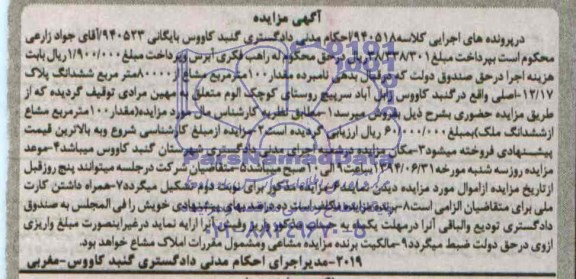 آگهی مزایده
درپرونده های اجرایی کلاسه ۹۴۰۵۱۸/احکام مدنی دادگستری گنبد کاووس بایگانی ۹۴۰۵۲۳/آقای جواد زارعی
محکوم است بپرداخت مبلغ ۳۸/۳۳۸/۳۰۱ریال درحق محکوم له راهب فکری آبرش وپرداخت مبلغ ۱/۹۰۰/۰۰۰ریال بابت
هزینه اجرا درحق صندوق دولت که درقبال بدهی نامبرده مقدار۱۰۰مترمربع مشاع از۸۰۰۰۰متر مربع ششدانگ پلاک
۱۲/۱۷-اصلی واقع درگنبد کاووس زابل آباد سرپیچ روستای کوچک الوم متعلق به مهین مرادی توقیف گردیده که از
طریق مزایده حضوری بشرح ذیل بفروش میرسد۱-مطابق نظریه کارشناس مال مورد مزایده(مقدار۱۰۰مترمربع مشاع
ازششدانگ ملک)بمبلغ ۶۰/۰۰۰/۰۰۰ ریال ارزیابی گردیده است۲-مزایده ازمبلغ کارشناسی شروع وبه بالاترین قیمت
پیشنهادی فروخته میشود۳-مکان مزایده درشعبه اجرای مدنی دادگستری شهرستان گنبد کاووس میباشد۴-موعد
مزایده روزسه شنبه مورخه ۱۳۹۴/۰۶/۳۱ساعت ۹ الی ۱۰ صبح میباشد۵-متقاضیان شرکت درجلسه میتوانند پنج روزقبل
ازتاریخ مزایده ازاموال مورد مزایده دیدن نمایند مزایده مذکور برای نوبت دوم تشکیل میگردد۷-همراه داشتن کارت
ملی برای متقاضیان الزامی است۸-برنده مزایده مکلف است ده درصد بهای پیشنهادی خویش را فی المجلس به صندوق
دادگستری تودیع والباقی آنرا درمهلت یکماه به حساب مذکور واریز وفیش آنرا ارایه نماید درغیراینصورت مبلغ واریزی
ازوی درحق دولت ضبط میگردد۹-مالکیت برنده مزایده مشاعی ومشمول مقررات املاک مشاع خواهد بود.
۲۰۱۹-مدیراجرای احکام مدنی دادگستری گنبد کاووس-مغربی
ParsNamadData